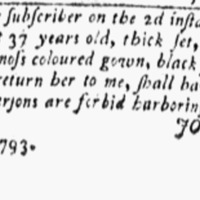 ſubſcriber on the 2d inſta
37 years old, thick ſet,
moſs coloured gown, black
return her to me, ſhall ha
erſons are forbid harborin
JO
793.